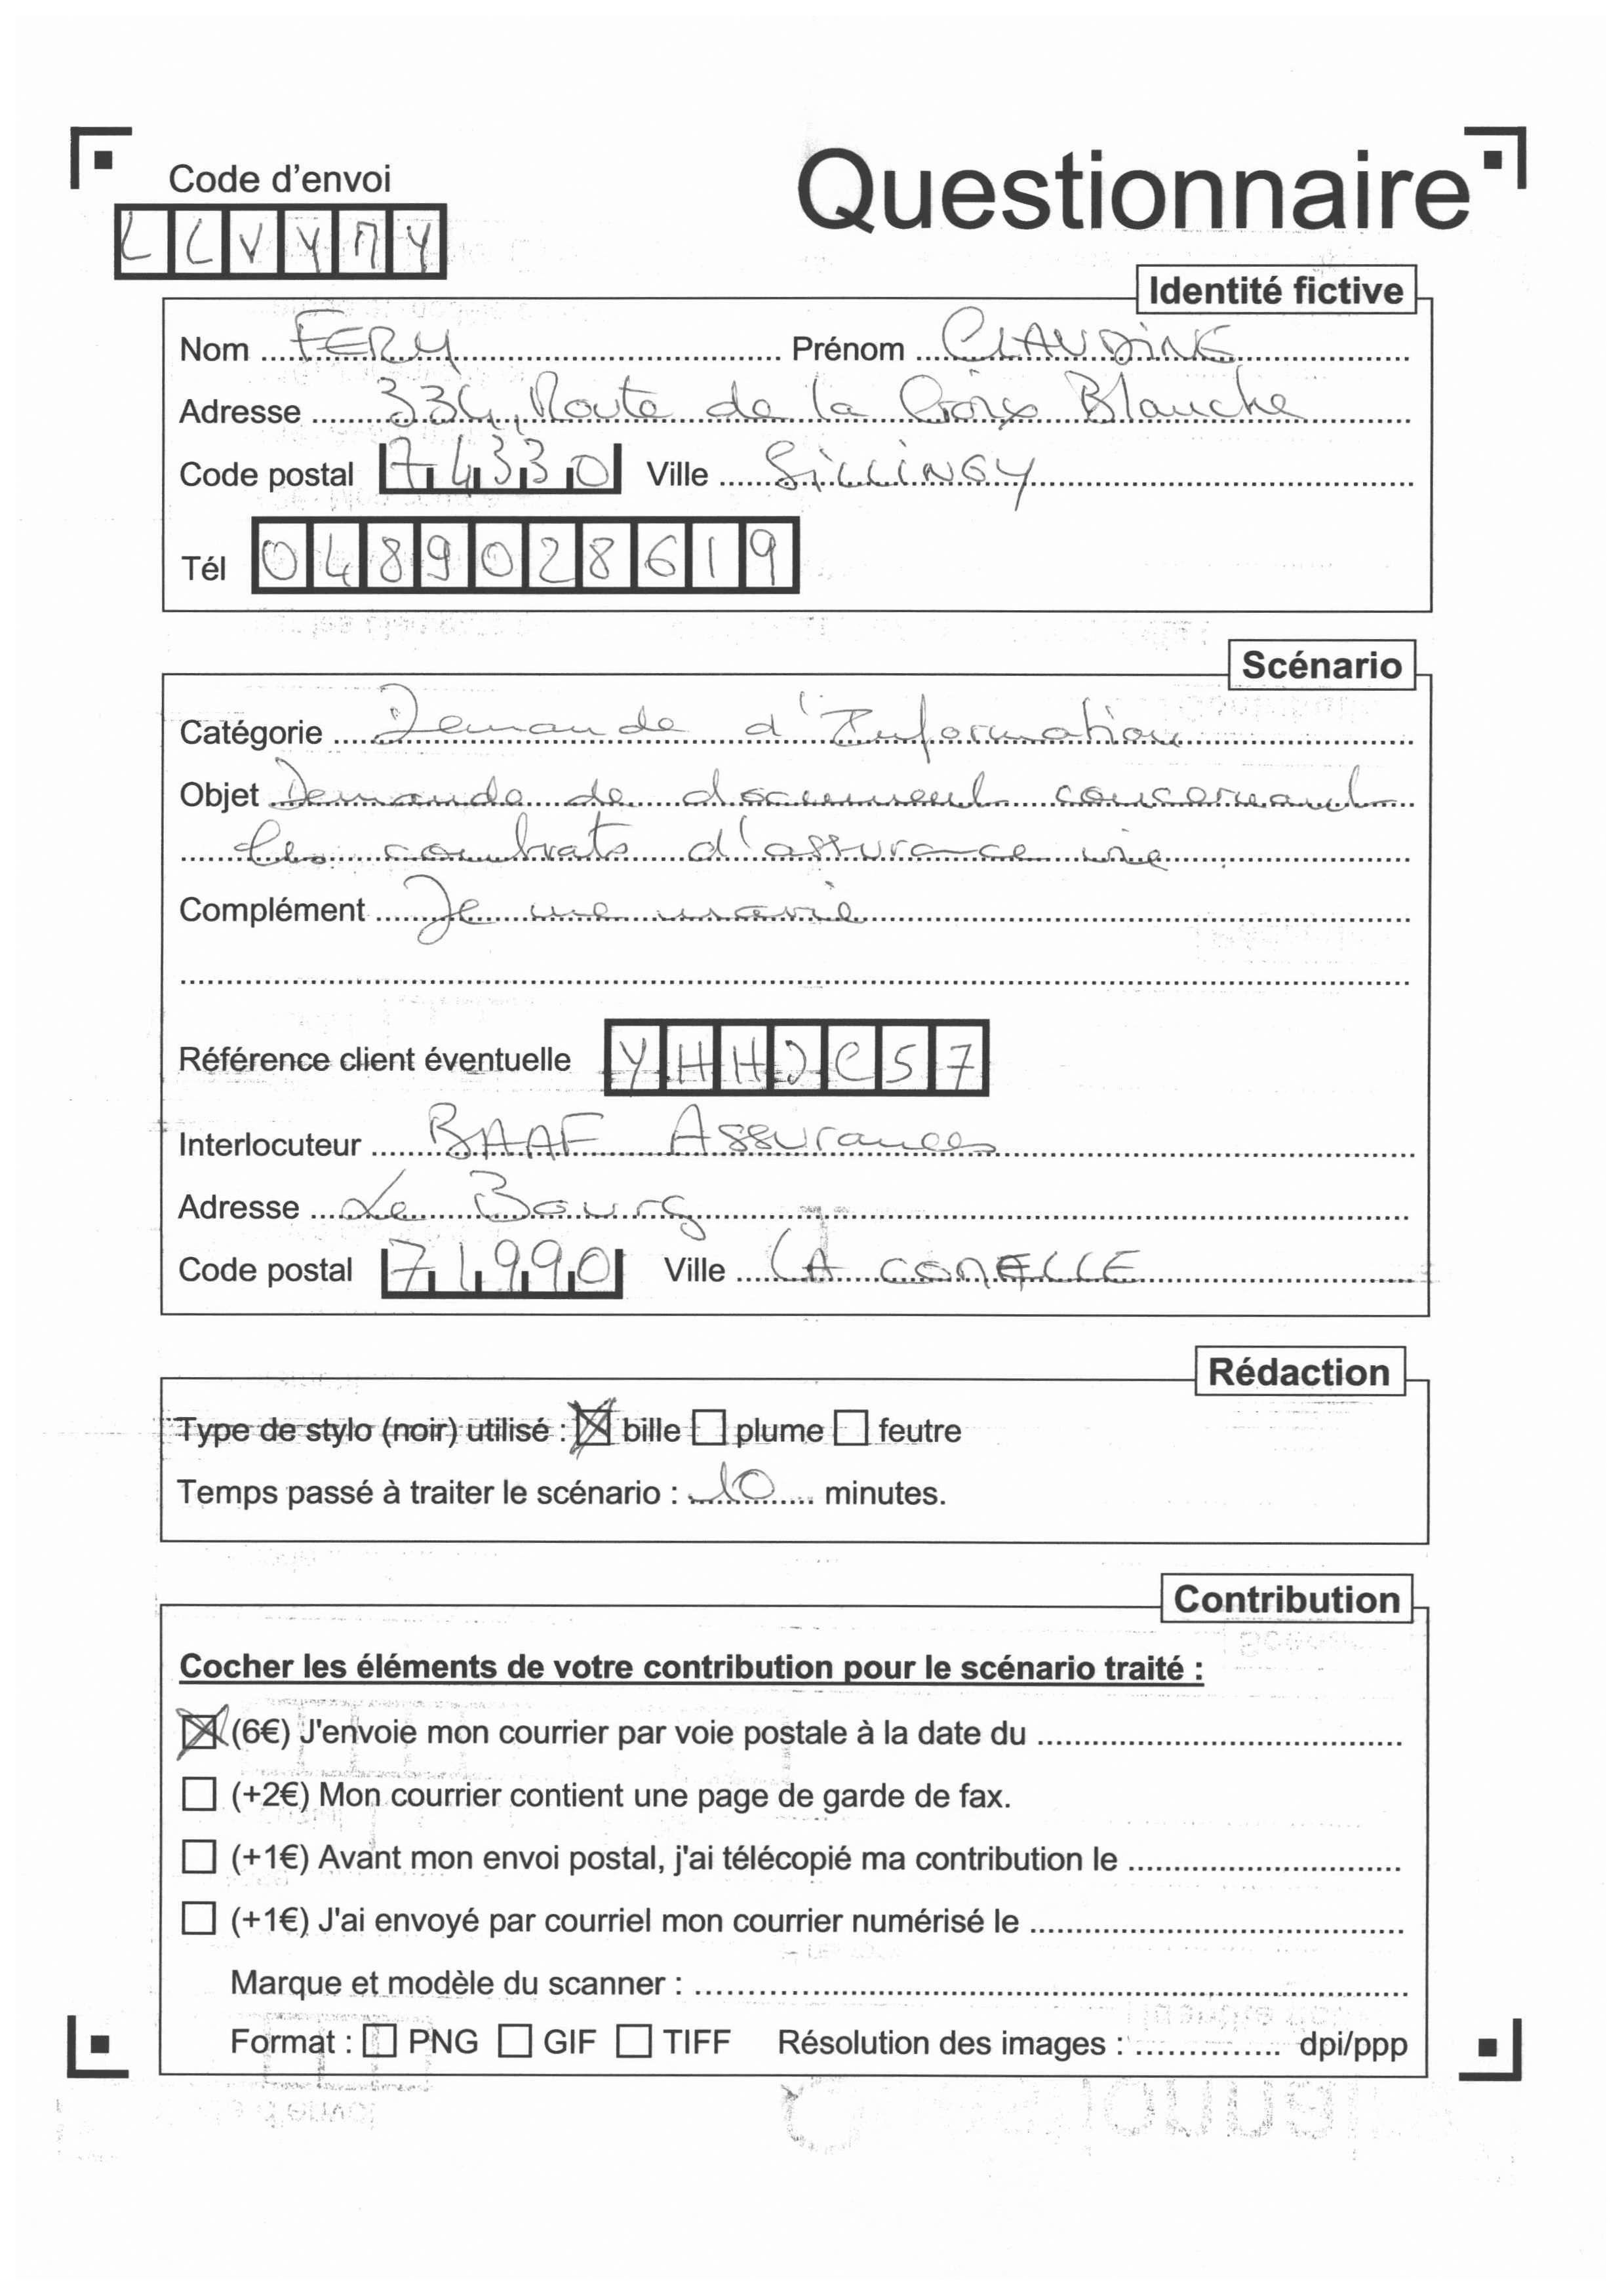 Questionnaire
Code d'envoi
LLVYMY
Identité fictive
Nom FERY Prénom CLAUDINE
Adresse 334, Route de la Croix Blanche
Code postal 74330 Ville SiLLiNGY
Tél 0489028619
Scénario
Catégorie Demande d'Information
Objet Demande de document concernant
les contrats d'assurance vie
Complément Je me marie
Référence client éventuelle YHHJC57
Interlocuteur BAAF Assurances
Adresse Le Bourg
Code postal 71990 Ville LA COMELLE
Rédaction
Type de stylo (noir) utilisé : bille plume feutre
Temps passé à traiter le scénario : 10 minutes.
Contribution
Cocher les éléments de votre contribution pour le scénario traité :
(6€) J'envoie mon courrier par voie postale à la date du
(+2€) Mon courrier contient une page de garde de fax.
(+1€) Avant mon envoi postal, j'ai télécopié ma contribution le
(+1€) J'ai envoyé par courriel mon courrier numérisé le
Marque et modèle du scanner :
Format : PNG GIF TIFF Résolution des images : dpi/ppp